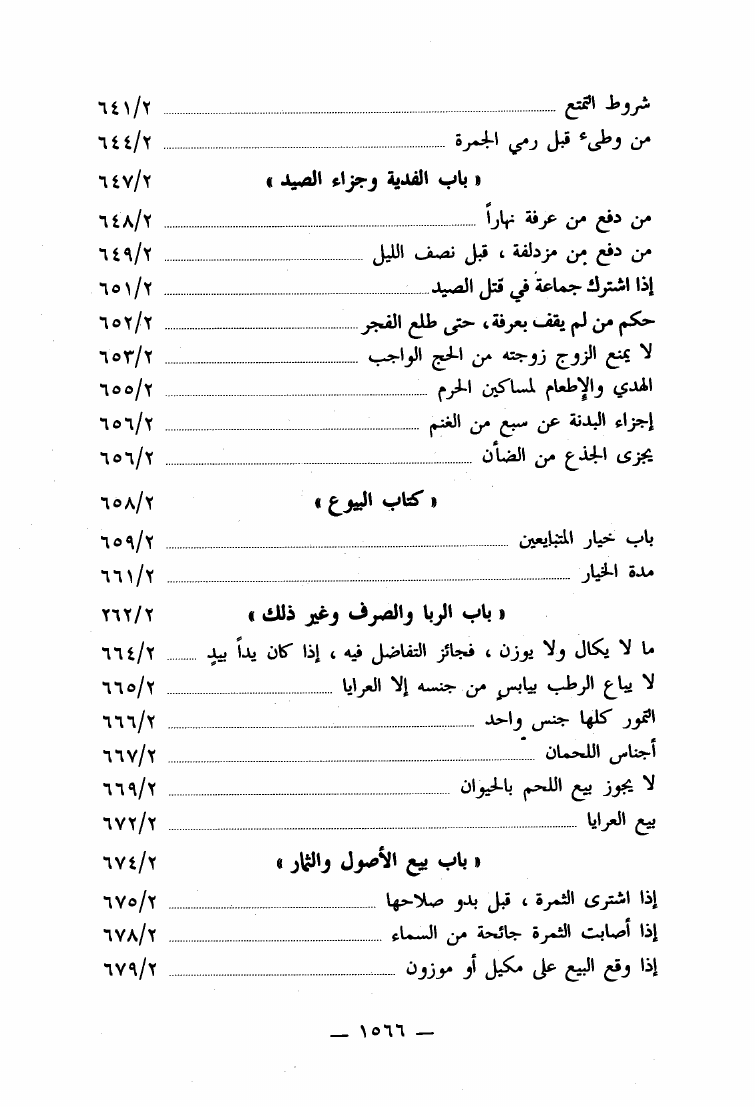 شروط التمتع ٦٤١/٢
من وطىء قبل رمي الجمرة ٦٤٤/٢
« باب الفدية وجزاء الصيد » ٦٤٧/٢
من دفع من عرفة نهاراً ٦٤٨/٢
من دفع من مزدلفة ، قبل نصف الليل ٦٤٩/٢
إذا اشترك جماعة في قتل الصيد ٦٥١/٢
حكم من لم يقف بعرفة، حتى طلع الفجر ٦٥٢/٢
لا يمنع الزوج زوجته من الحج الواجب ٦٥٣/٢
الهدي والإطعام لمساكين الحرم ٦٥٥/٢
إجزاء البدنة عن سبع من الغنم ٦٥٦/٢
يجزى الجذع من الضأن ٦٥٦/٢
« كتاب البيوع » ٦٥٨/٢
باب خيار المتبايعين ٦٥٩/٢
مدة الخيار ٦٦١/٢
« باب الربا والصرف وغير ذلك » ٢٦٢/٢
ما لا يكال ولا يوزن ، فجائز التفاضل فيه ، إذا كان يداً بيدٍ ٦٦٤/٢
لا يباع الرطب بيابسٍ من جنسه إلا العرايا ٦٦٥/٢
التمور كلها جنس واحد ٦٦٦/٢
أجناس اللحمان ٦٦٧/٢
لا يجوز بيع اللحم بالحيوان ٦٦٩/٢
بيع العرايا ٦٧٢/٢
« باب بيع الأصول والثمار » ٦٧٤/٢
إذا اشترى الثمرة ، قبل بدو صلاحها ٦٧٥/٢
إذا أصابت الثمرة جائحة من السماء ٦٧٨/٢
إذا وقع البيع على مكيل أو موزون ٦٧٩/٢
— ١٥٦٦ —